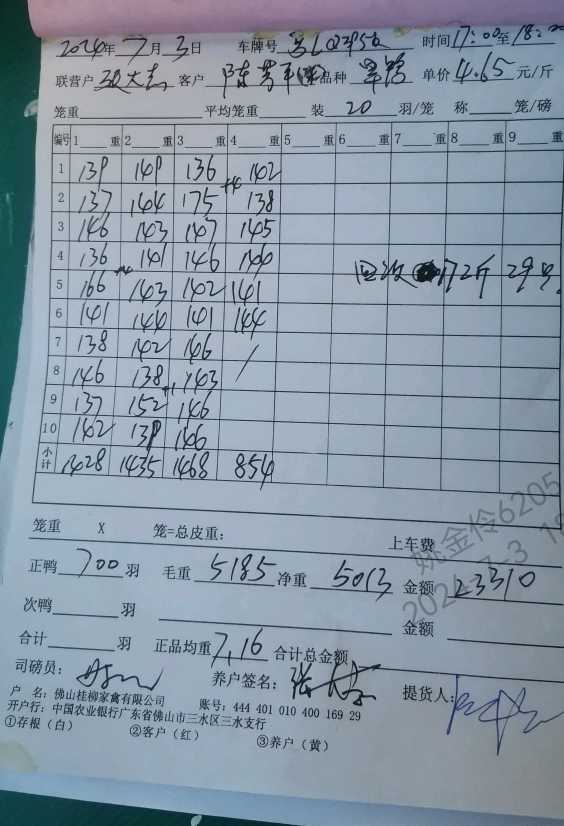 2024年7月3日 车牌号 时间17:00至18:00
联营户 客户 陈 品种 单价4.65元/斤
笼重 平均笼重 装20羽/笼 称 笼/磅
编号 1 重 2 重 3 重 4 重 5 重 6 重 7 重 8 重 9 重
1 139 149 136 142
2 137 144 175 138
3 146 143 147 145
4 136 141 146 140
回收 172斤 29只
5 166 143 142 141
6 141 144 141 144
7 138 142 146 /
8 146 138 143
9 137 152 146
10 142 139 146
小计 1428 1435 1468 854
笼重 X 笼=总皮重: 上车费
正鸭700羽 毛重5185 净重5013 金额23310
次鸭 羽 金额
合计 羽 正品均重7.16 合计总金额
司磅员: 养户签名: 张 提货人:
户 名: 佛山桂柳家禽有限公司 账号: 444 401 010 400 169 29
开户行: 中国农业银行广东省佛山市三水区三水支行
①存根（白） ②客户（红） ③养户（黄）
姚金伶6205